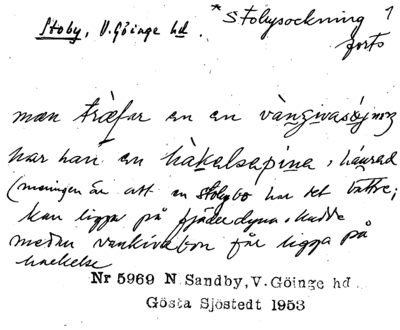 *Stobysockning 1
Stoby, V. Göinge hd.
forts
mœn träfar en en vàngwasöjnıng
har han en hàkelsepina i håurad
(meningen är att en stobybo har det bättre;
kan ligga på fjäderdyna i hudde
medan vankivabon får ligga på
hackelse
Nr 5969 N Sandby, V. Göinge hd
Gösta Sjöstedt 1953